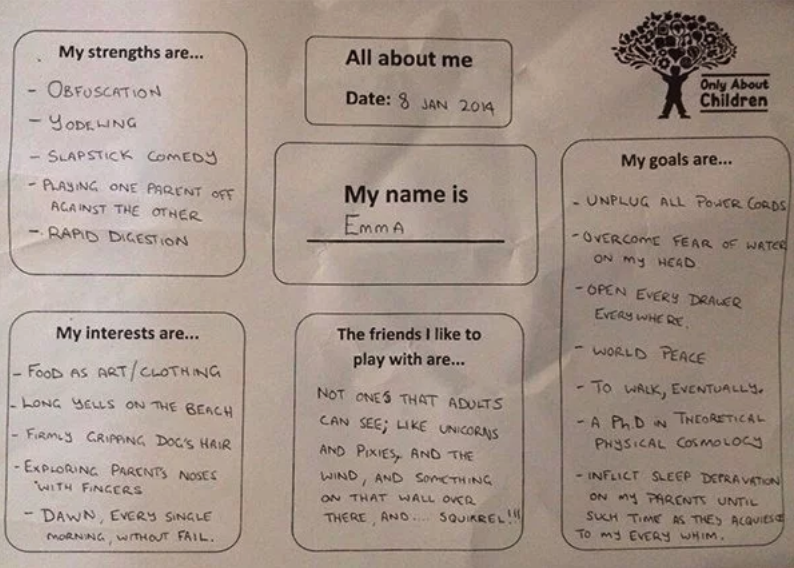 My strengths are...
- OBFUSCATION
- YODELING
- SLAPSTICK COMEDY
- PLAYING ONE PARENT OFF
AGAINST THE OTHER
- RAPID DIGESTION
All about me
Date: 8 JAN 2014
Only About
Children
My name is
EmmA
My goals are...
- UNPLUG ALL POWER CORDS
- OVERCOME FEAR OF WATER
ON MY HEAD
- OPEN EVERY DRAWER
EVERYWHERE.
- WORLD PEACE
- TO WALK, EVENTUALLY.
- A Ph.D IN THEORETICAL
PHYSICAL COSMOLOGY
- INFLICT SLEEP DEPRAVATION
ON MY PARENTS UNTIL
SUCH TIME AS THEY ACQUIESCE
TO MY EVERY WHIM.
My interests are...
- FOOD AS ART/CLOTHING
- LONG YELLS ON THE BEACH
- FIRMLY GRIPPING DOG'S HAIR
- EXPLORING PARENTS NOSES
WITH FINGERS
- DAWN, EVERY SINGLE
MORNING, WITHOUT FAIL.
The friends I like to
play with are...
NOT ONES THAT ADULTS
CAN SEE; LIKE UNICORNS
AND PIXIES, AND THE
WIND, AND SOMETHING
ON THAT WALL OVER
THERE, AND.... SQUIRREL!!!